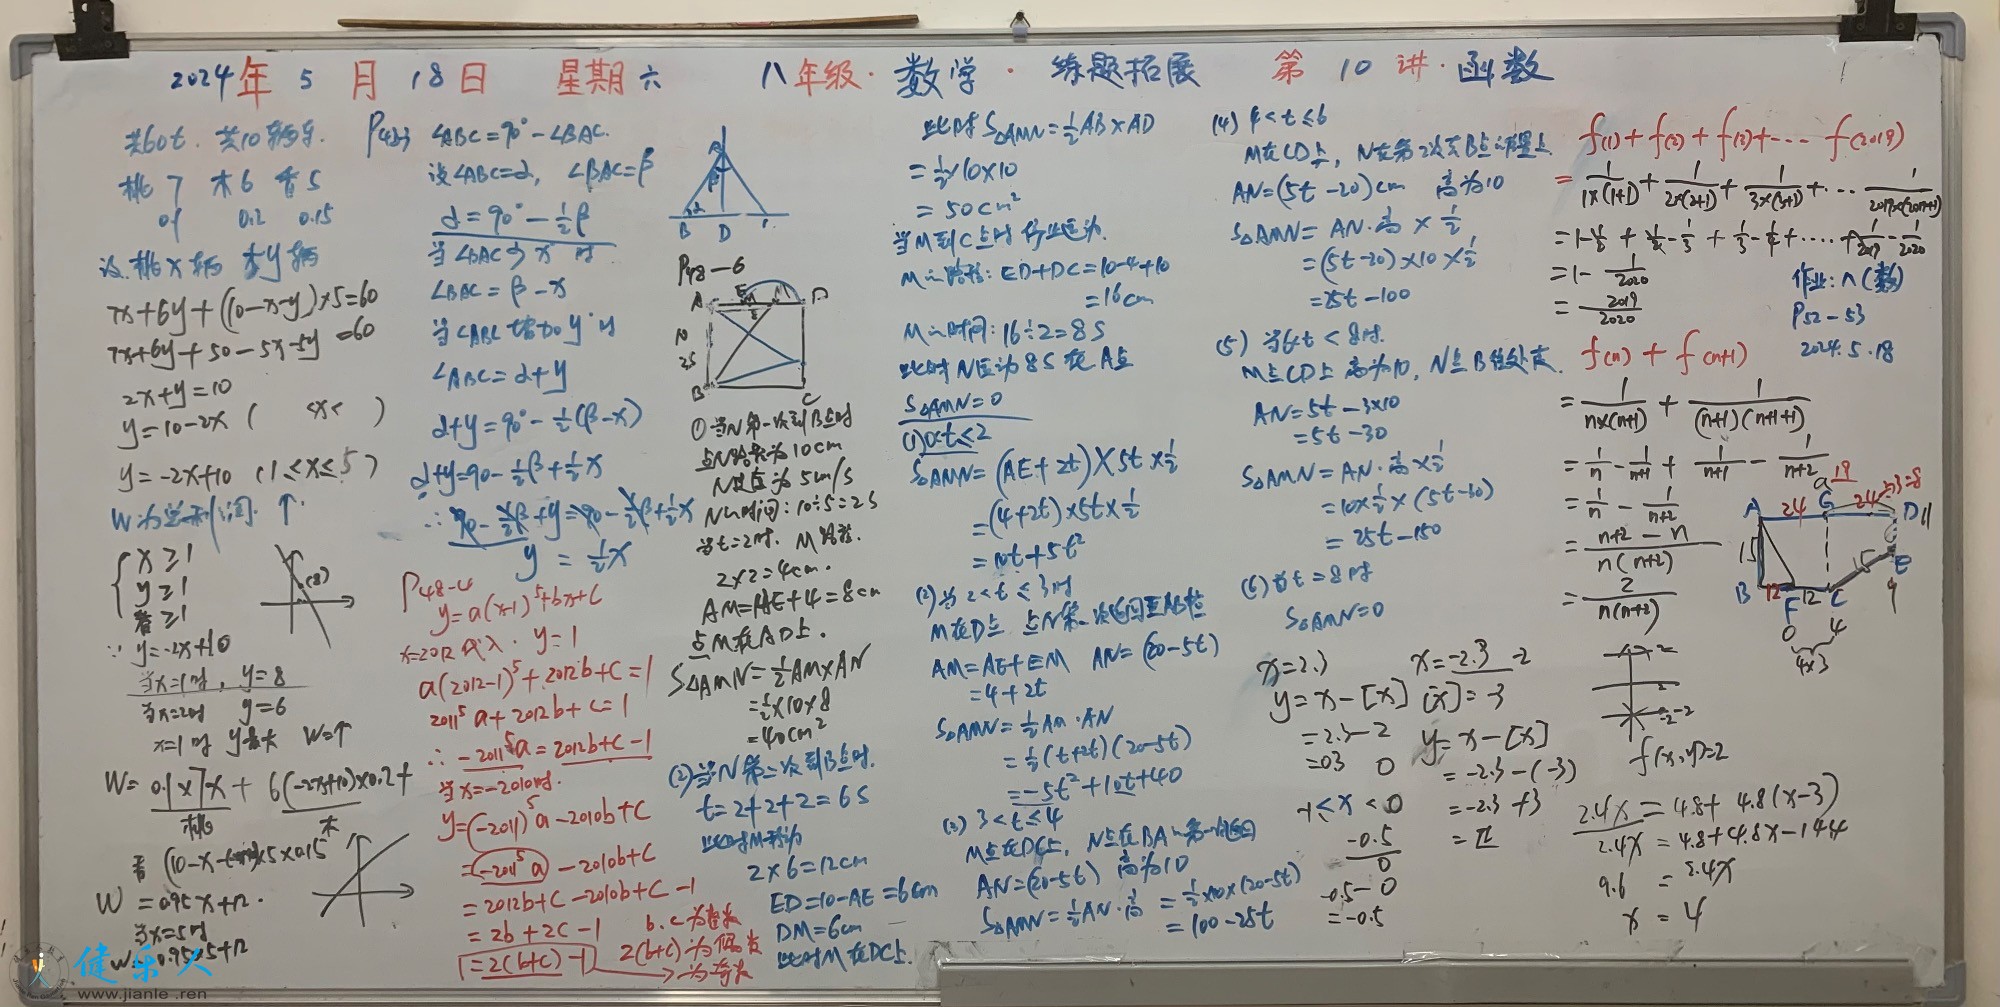 2024年5月18日 星期六 八年级·数学·练题拓展 第10讲·函数
共60t. 共10辆车.
桃7 木6 香5
0.1 0.2 0.15
设.桃x辆 木y辆
7x+6y+(10-x-y)×5=60
7x+6y+50-5x-5y=60
2x+y=10
y=10-2x ( <x< )
y=-2x+10 (1≤x≤5)
W为总利润. ↑.
x≥1
y≥1
香≥1
∵ y=-2x+10
当x=1时, y=8
当x=2时 y=6
x=1时 y最大 W=↑
W=0.1×7x+6(-2x+10)×0.2+
桃 木
W=0.95x+12.
当x=5时
W=0.95×5+12
∠ABC=90°-∠BAC.
设∠ABC=α, ∠BAC=β
α=90°-½β
当∠BAC
∠BAC=β-x
∠ABC=α+y
α+y=90°-½(β-x)
α+y=90-½β+½x
∴ 90-½β+y=90-½β+½x
y=½x
y=a(x-1)⁵+bx+c
x=2012代入. y=1
a(2012-1)⁵+2012b+c=1
2011⁵a+2012b+c=1
∴ -2011⁵a=2012b+c-1
当x=-2010时.
y=(-2011)⁵a-2010b+c
=(-2011⁵a)-2010b+c
=2012b+c-2010b+c-1
=2b+2c-1 b.c为整数
=2(b+c)-1 2(b+c)为偶数
为奇数
A
B D
P48-6
A E M D
10
B C
①当N第一次到B点时
点N路长为10cm
N速度为5cm/s
N的时间:10÷5=2s
当t=2时. M路程.
2×2=4cm.
AM=AE+4=8cm
点M在AD上.
S△AMN=½AM×AN
=½×10×8
=40cm²
(2)当N第二次到B点时.
t=2+2+2=6s
此时M移动
2×6=12cm
ED=10-AE=6cm
DM=6cm
此时M在DC上.
此时S△AMN=½AB×AD
=½×10×10
=50cm²
当M到C点时停止运动.
M的路程:ED+DC=10-4+10
=16cm
M的时间:16÷2=8s
此时N运动8s在A点
S△AMN=0
(1)0<t≤2
S△AMN=(AE+2t)×5t×½
=(4+2t)×5t×½
=10t+5t²
(2)当2<t≤3时
AM=AE+EM AN=(20-5t)
=4+2t
S△AMN=½AM·AN
=½(4+2t)(20-5t)
=-5t²+10t+40
(3) 3<t≤4
AN=(20-5t) 高为10
S△AMN=½AN·高=½×10×(20-5t)
=100-25t
(4) 4<t≤6
AN=(5t-20)cm 高为10
S△AMN=AN·高×½
=(5t-20)×10×½
=25t-100
(5) 当6<t<8时.
AN=5t-3×10
=5t-30
S△AMN=AN·高×½
=10×½×(5t-30)
=25t-150
(6)当t=8时
S△AMN=0
x=2.3
y=x-[x]
=2.3-2
=0.3
-1≤x<0
-0.5
0
-0.5-0
=-0.5
x=-2.3 -2
[x]=-3
y=x-[x]
=-2.3-(-3)
=-2.3+3
f(1)+f(2)+f(3)+… f(2019)
=1/1×(1+1)+1/2×(2+1)+1/3×(3+1)+…
=1-½+½-⅓+⅓-¼+……+1/2019-1/2020
=1-1/2020
=2019/2020
作业:
P52-53
2024.5.18
f(n)+f(n+1)
=1/n×(n+1)+1/(n+1)(n+1+1)
=1/n-1/n+1+1/n+1-1/n+2
=1/n-1/n+2
=n+2-n/n(n+2)
=2/n(n+2)
A 24 G 24 D
15 15 E
B 12 F 12 C
4×3
f(x,y)=2
2.4x=4.8+4.8(x-3)
2.4x=4.8+4.8x-14.4
9.6=2.4x
x=4
健乐人
www.jianle.ren